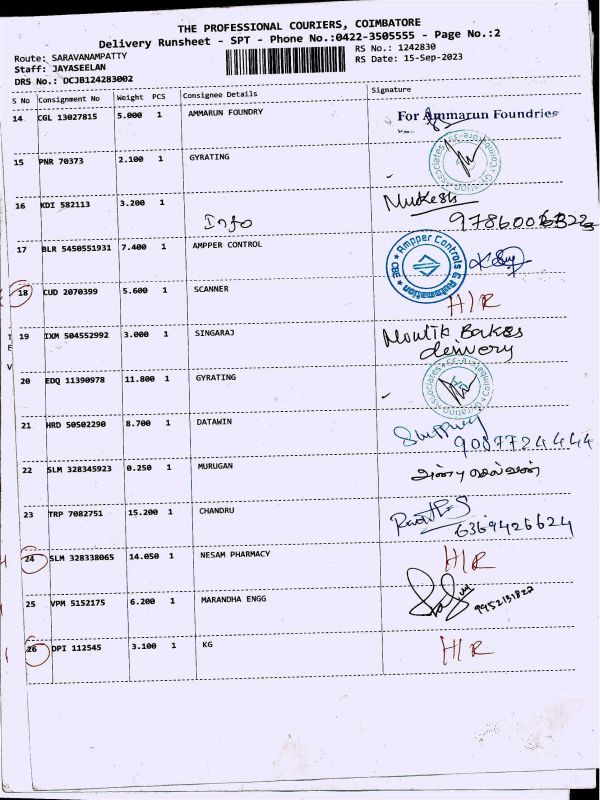 THE PROFESSIONAL COURIERS, COIMBATORE
Delivery Runsheet - SPT - Phone No.:0422-3505555 - Page No.:2
Route: SARAVANAMPATTY
RS No.: 1242830
Staff: JAYASEELAN
RS Date: 15-Sep-2023
DRS No.: DCJB124283002
S No Consignment No Weight PCS Consignee Details Signature
14 CGL 13027815 5.000 1 AMMARUN FOUNDRY For Ammarun Foundries
15 PNR 70373 2.100 1 GYRATING
16 KDI 582113 3.200 1 Info Mukesh
17 BLR 5450551931 7.400 1 AMPPER CONTROL Ampper Controls & Automation CBE
18 CUD 2070399 5.600 1 SCANNER H/R
19 IXM 504552992 3.000 1 SINGARAJ Moulik Bakes
delivery
20 EDQ 11390978 11.800 1 GYRATING
21 HRD 50502290 8.700 1 DATAWIN
9087724444
22 SLM 328345923 0.250 1 MURUGAN
23 TRP 7082751 15.200 1 CHANDRU
6369426624
24 SLM 328338065 14.050 1 NESAM PHARMACY H/R
25 VPM 5152175 6.200 1 MARANDHA ENGG 9952131822
26 DPI 112545 3.100 1 KG H/R